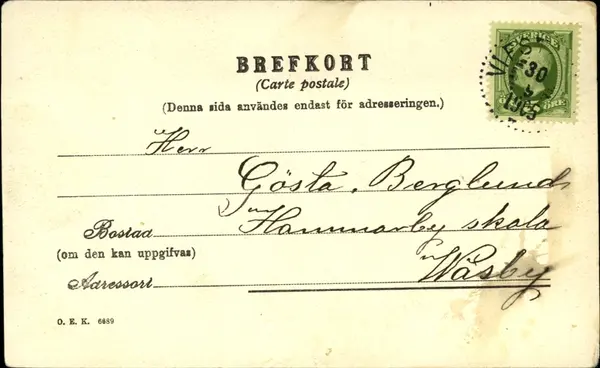 BREFKORT
(Carte postale)
(Denna sida användes endast för adresseringen.)
SVERIGE
30
1905
ÖRE
Herr
Gösta Berglund
Hammarby skola
Bostad
(om den kan uppgifvas)
Wäsby
Adressort
O. E. K. 6489